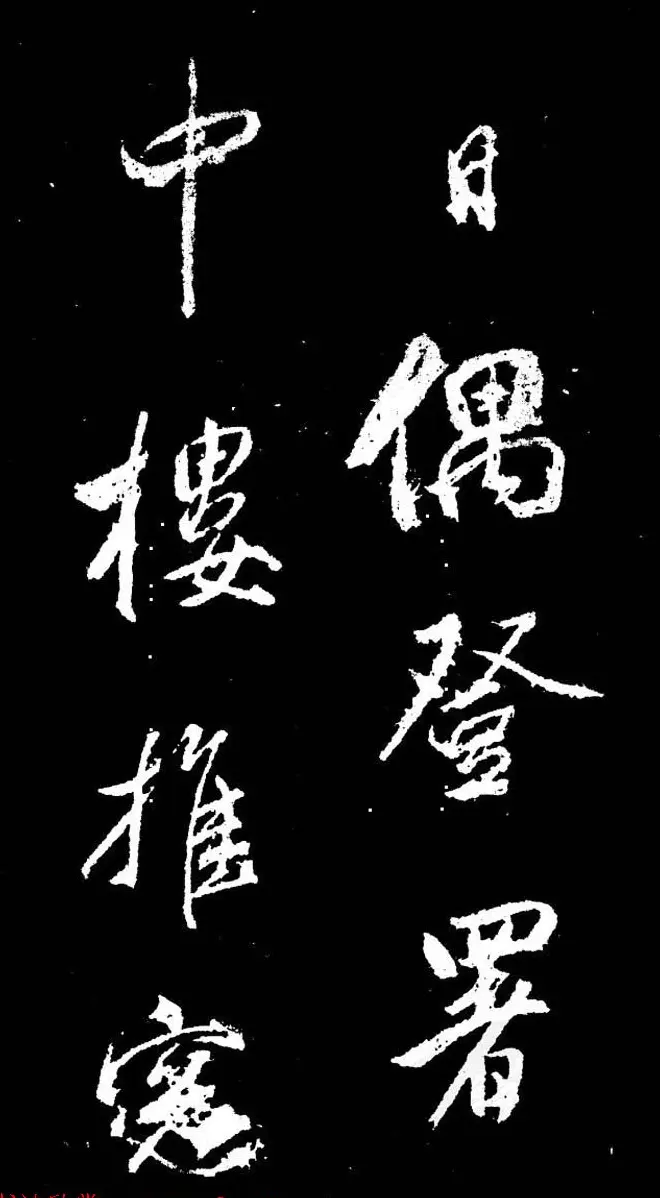 日偶登署
中樓推窻